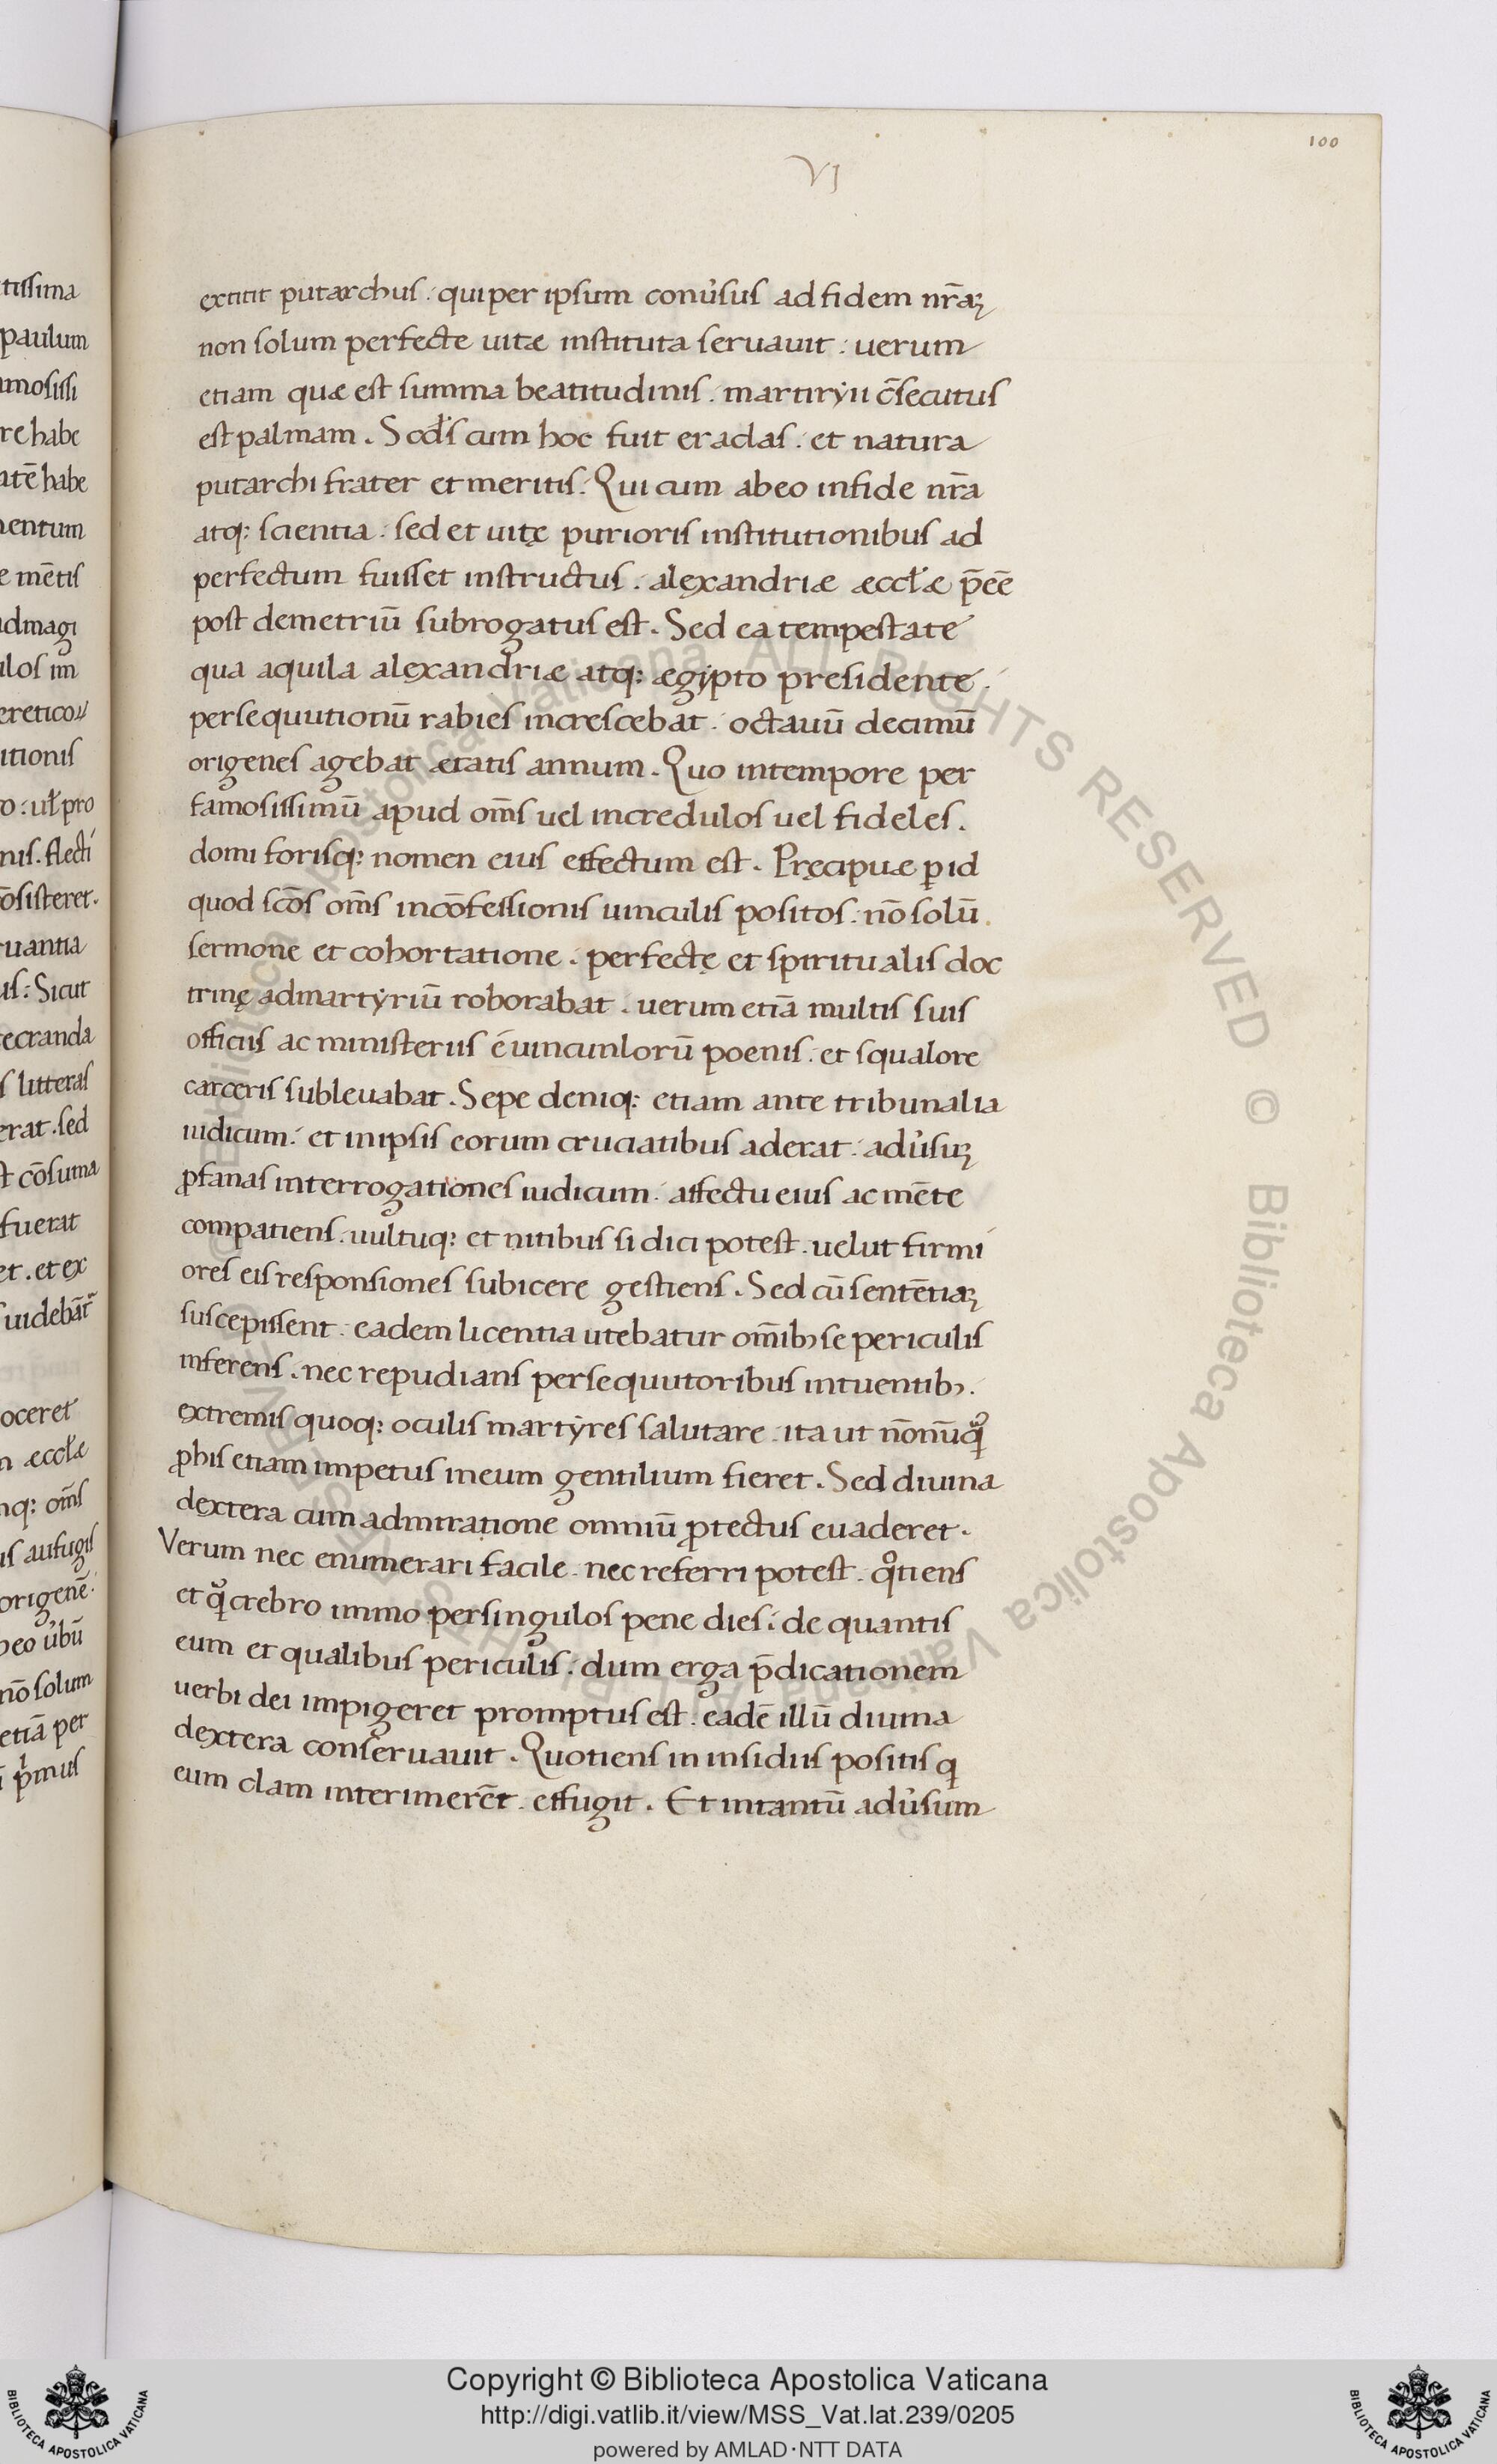 VI
100
extitit putarchus. qui per ipsum conůsus ad fidem nr̄aꝝ
non solum perfecte uitæ instituta seruauit. uerum
etiam quæ est summa beatitudinis. martirẏii c̄secutus
est palmam. Sodł̓s cum hoc fuit eraclas. et natura
putarchi frater et meritis. Qui cum abeo infide nr̄a
atq: scientia. sed et uitę purioris institutionibus ad
perfectum fuisset instructus. alęxandriæ æccłæ p̄eē
post demetriū subrogatus est. Sed ea tempestate
qua aquila alęxandriæ atq: ægipto presidente.
persequutionū rabies increscebat. octauū decimū
origenes agebat ætatis annum. Quo intempore per
famosissimū apud om̄s uel incredulos uel fideles.
domi forisq: nomen eius effectum est. Pręcipuæ ꝑ id
quod sc̄os om̄s incōfessionis uinculis positos. nō solū
sermone et cohortatione. perfectę et spiritualis doc
trinę admartẏriū roborabat. uerum etiā multis suis
officiis ac ministeriis é uincunlorū poenis. et squalore
carceris subleuabat. Sepe deniq: etiam ante tribunalia
iudicum. et inipsis eorum cruciatibus aderat. adůsuꝝ
ꝓfanas interrogationes iudicum. affectu eius ac mēte
compatiens. uultuq: et nitibus si dici potest. uelut firmi
ores eis responsiones subicere gestiens. Sed cū sentētiaꝝ
suscepissent. eadem licentia utebatur om̄ibꝫ se periculis
inferens. nec repudians persequutoribus intuentibꝫ.
extremis quoq: oculis martẏres salutare. ita ut nōnūqͣ̊
ꝓbis etiam impetus ineum gentilium fieret. Sed diuina
dęxtera cum admiratione omniū ꝓtectus euaderet.
Verum nec enumerari facile. nec referri potest. qͦtiens
et qͣ̊ crebro immo persingulos pene dies. de quantis
eum et qualibus periculis. dum erga p̄dicationem
uerbi dei impigeret promptus est. eadē illū diuina
dęxtera conseruauit. Quotiens in insidiis positis q
eum clam interimerēt. effugit. Et intantū adůsum
tissima
paulum
amosissi
re habe
atē habe
entum
e mētis
admagi
ulos im
itionis
o. uł pro
nis. flecti
cōsisteret.
ruantia
us. Sicut
ecranda
s litteras
erat. sed
cōsuma
fuerat
et. et ex
oceret
æccłæ
nq: om̄s
is aufugis
origenē.
eo ůbū
nō solum
etiā per
Copyright © Biblioteca Apostolica Vaticana
http://digi.vatlib.it/view/MSS_Vat.lat.239/0205
powered by AMLAD·NTT DATA
BIBLIOTECA APOSTOLICA VATICANA
BIBLIOTECA APOSTOLICA VATICANA
© Biblioteca Apostolica Vaticana ALL RIGHTS RESERVED © Biblioteca Apostolica Vaticana ALL RIGHTS RESERVED